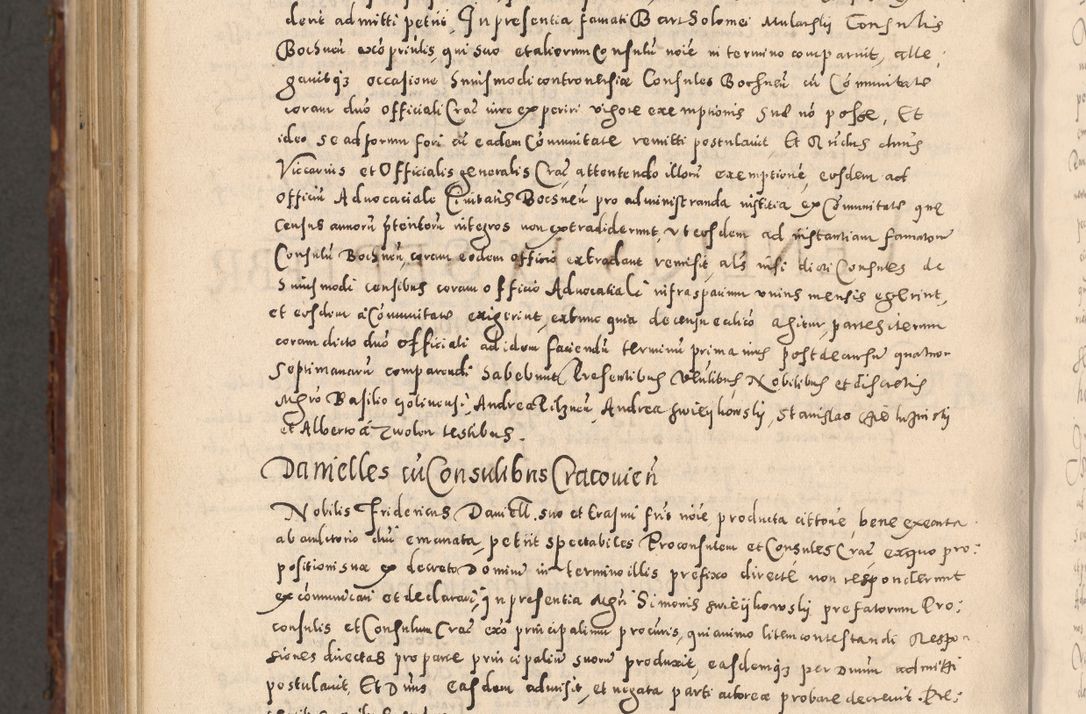 dent admitti petiit, In presentia famati Bartholomei Mularsky Consulis
Bochnen ex eo priñlis, qui suo et aliorum Consulũ noiẽ in termino comparuit, alle:
gavitqʒ occasione huiusmodi controversiæ Consules Bochneñ cũ Cõmunitate
coram duo Officiali Crac̃ iure experiri vigore exemptionis suæ nõ posse, Et
ideo se ad forum fori cũ eadem Cõmunitate remitti postulavit Et R̃ndus dñus
Viccarius et Officialis generalis Crac̃, attentendo illorũ exemptionẽ, eosdem ad
Officiũ Advocaciale Civitatis Bochneñ pro administranda iustitia ex Cõmunitate quæ
Census annorũ p̃teritorũ integros non extradiderunt, ut eosdem ad instantiam famatorũ
Consulũ Bochneñ, coram eodem officio extradant remisit, als nisi dicti Consules de
huiusmodi censibus coram officio Advocatiali infra spacium unius mensis egerint,
et eosdem a Cõmunitate exigerint, extunc quia de censu ecclico agitur, partes iterum
coram dicto duo Officiali ad idem faciendũ terminũ prima iuris post decursũ quatuor
septimanarũ comparendi habebunt, Presentibus Veñlibus Nobilibus et discretis
Mgro Basilio Golinensi, Andrea Pilzneñ, Andrea Swieykowsky, Stanislao
et Alberto à Zwolen testibus.
Danielles cũ Consulibus Cracovieñ
Nobilis Fridericus Daniell. suo et Erasmi fr̃is noiẽ producta cittõne, bene executa
ab auditorio dñi emanata, petiit spectabiles Proconsulem et Consules Crac̃, ex quo pro:
positioni suæ ex decreto Dominũ in termino illis prefixo directe non responderunt
excõmunicari et declarari, In presentia Mgri Simonis Swieykowsky prefatorum Pro:
consulis et Consulum Crac̃ ex eo principalium procuris, qui animo litem contestandi Respon
siones directas pro parte principaliũ suorũ produxit, easdemqʒ per Dnum admitti
postulavit, Et Dñus easdem admisit, et negata parti actoreæ probare decrevit. Pre: